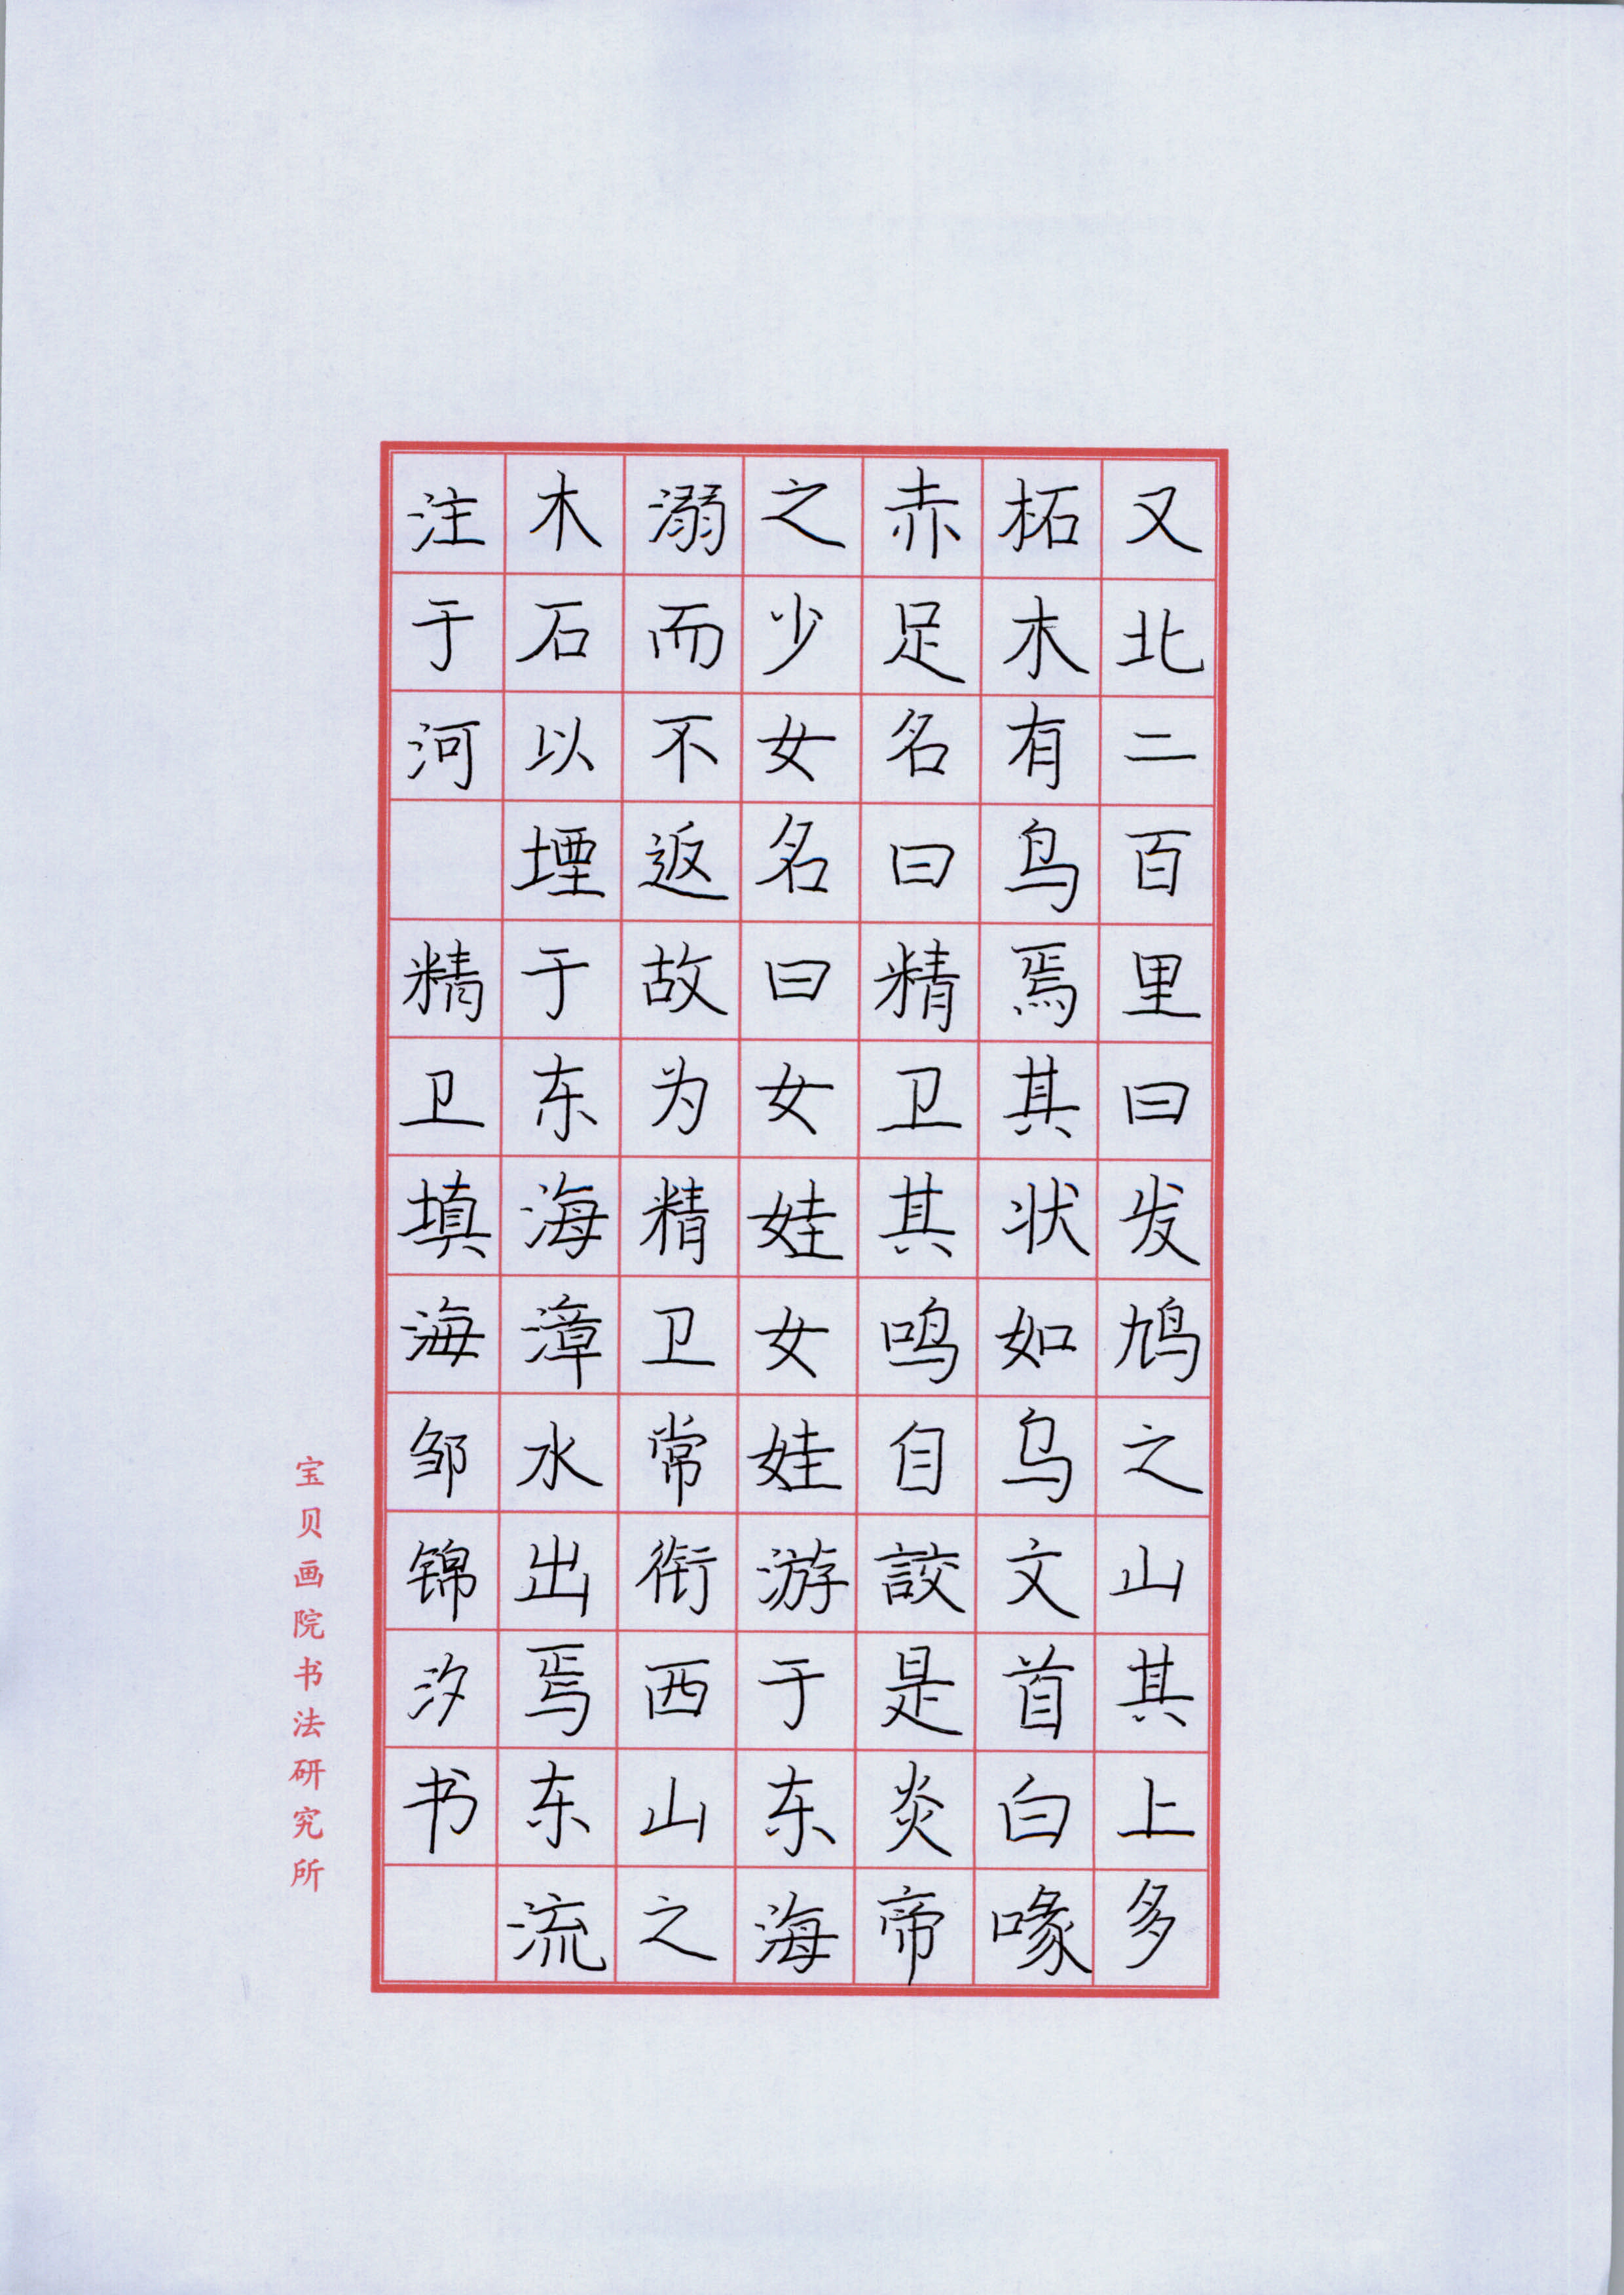 又北二百里曰发鸠之山其上多
柘木有鸟焉其状如乌文首白喙
赤足名曰精卫其鸣自詨是炎帝
之少女名曰女娃女娃游于东海
溺而不返故为精卫常衔西山之
木石以堙于东海漳水出焉东流
注于河 精卫填海邹锦汐书
宝贝画院书法研究所